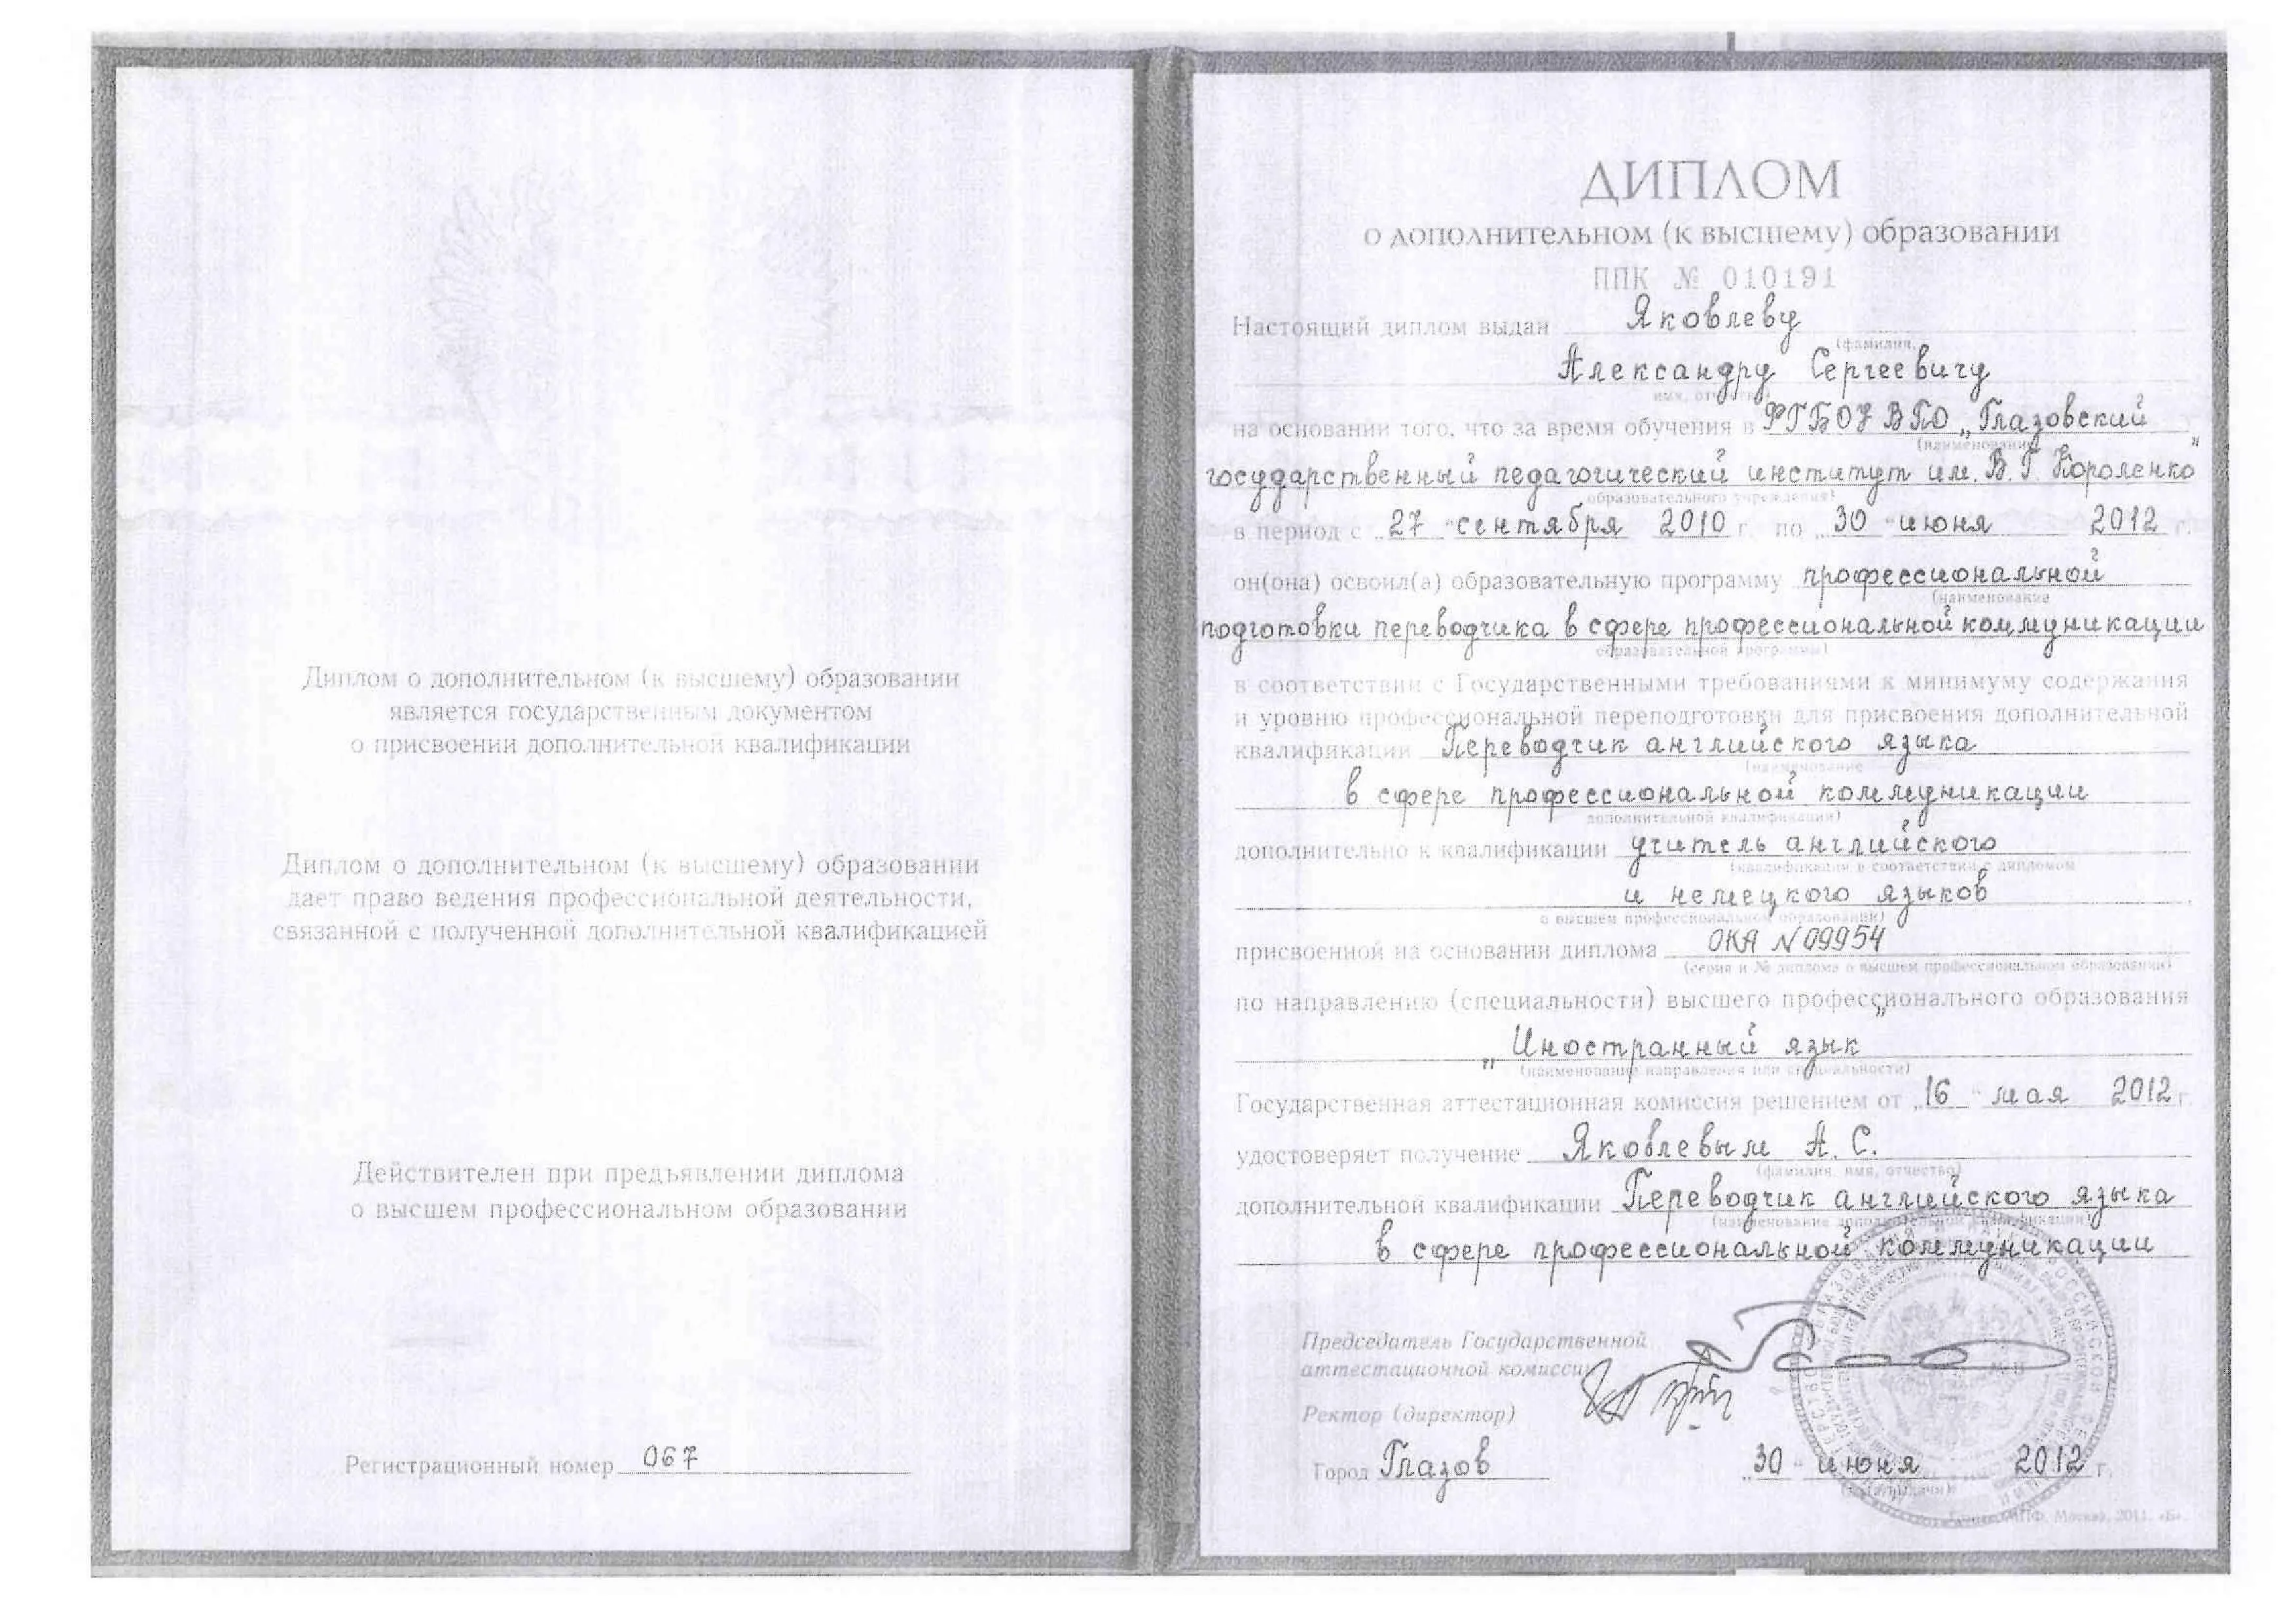 Диплом о дополнительном (к высшему) образовании
является государственным документом
о присвоении дополнительной квалификации
Диплом о дополнительном (к высшему) образовании
дает право ведения профессиональной деятельности,
связанной с полученной дополнительной квалификацией
Действителен при предъявлении диплома
о высшем профессиональном образовании
Регистрационный номер 067
ДИПЛОМ
о дополнительном (к высшему) образовании
ППК № 010191
Настоящий диплом выдан Яковлеву
(фамилия,
Александру Сергеевичу
имя, отчество)
на основании того, что за время обучения в ФГБОУ ВПО „Глазовский
(наименование
государственный педагогический институт им. В. Г. Короленко"
образовательного учреждения)
в период с „27" сентября 2010 г. по „30" июня 2012 г.
он(она) освоил(а) образовательную программу профессиональной
(наименование
подготовки переводчика в сфере профессиональной коммуникации
образовательной программы)
в соответствии с Государственными требованиями к минимуму содержания
и уровню профессиональной переподготовки для присвоения дополнительной
квалификации Переводчик английского языка
(наименование
в сфере профессиональной коммуникации
дополнительной квалификации)
дополнительно к квалификации учитель английского
(квалификация в соответствии с дипломом
и немецкого языков
о высшем профессиональном образовании)
присвоенной на основании диплома ОКА №09954
(серия и № диплома о высшем профессиональном образовании)
по направлению (специальности) высшего профессионального образования
„Иностранный язык"
(наименование направления или специальности)
Государственная аттестационная комиссия решением от „16" мая 2012 г.
удостоверяет получение Яковлевым А. С.
(фамилия, имя, отчество)
дополнительной квалификации Переводчик английского языка
(наименование дополнительной квалификации)
в сфере профессиональной коммуникации
Председатель Государственной
аттестационной комиссии
М.П.
Ректор (директор)
Город Глазов „30" июня 2012 г.
(дата выдачи)
МПФ, Москва, 2011, «Б».